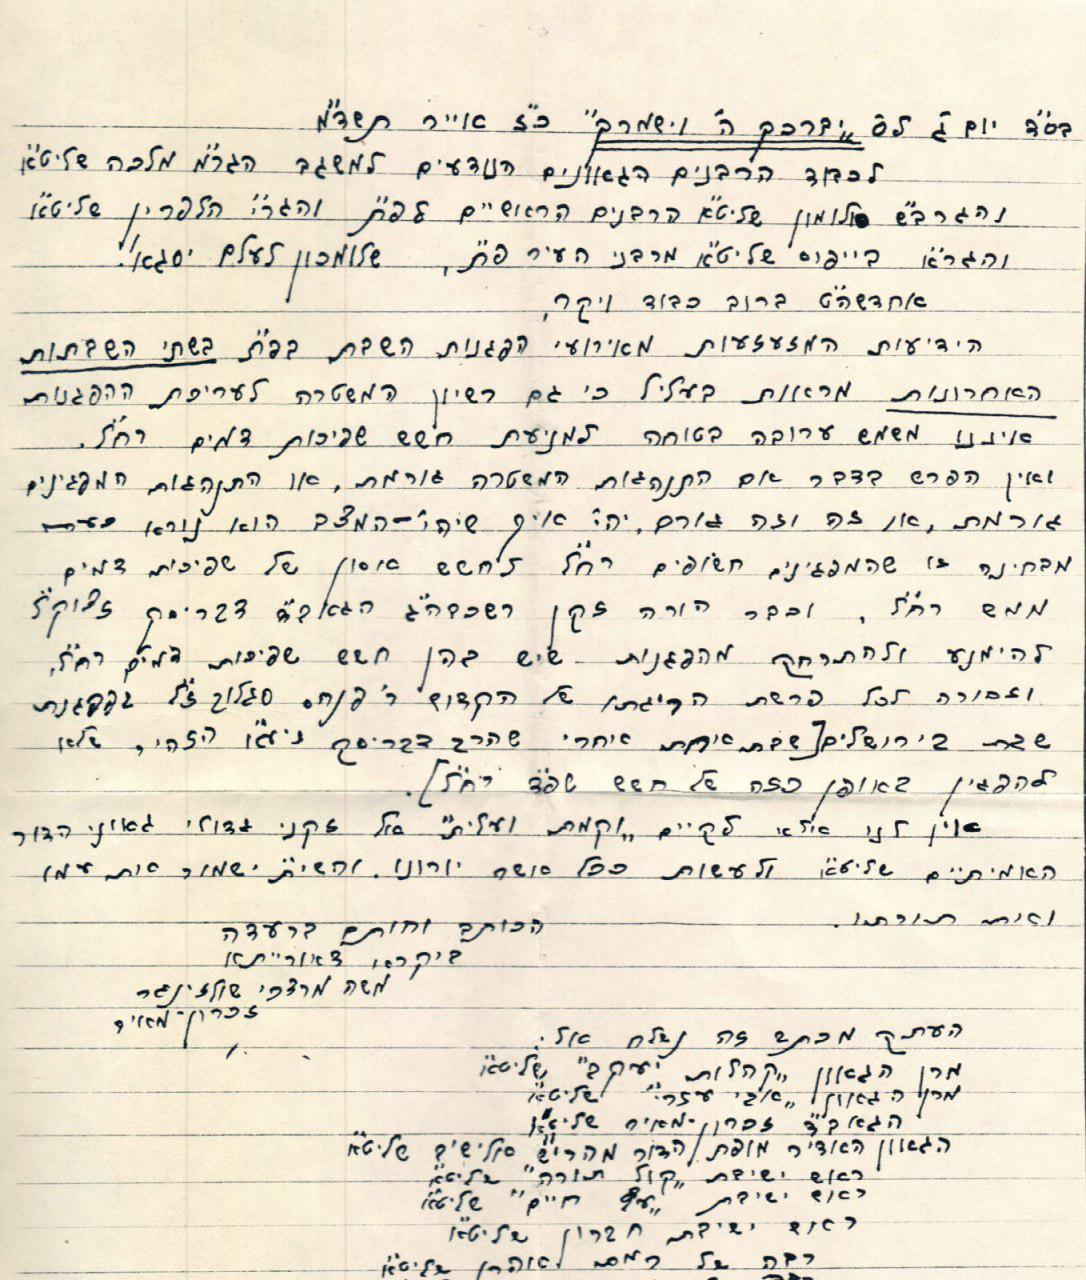 בס"ד יום ג' לס' "יברכך ה' וישמרך" כ"ז אייר תשד"מ
לכבוד הרבנים הגאונים הנודעים למשגב הגר"מ מלכה שליט"א
והגרב"ש סלומון שליט"א הרבנים הראשיים לפ"ת והגר"י הלפרין שליט"א
והגר"א בייפוס שליט"א מרבני העיר פ"ת, שלומכון לעלם יסגא!
אחדשה"ט ברוב כבוד ויקר,
הידיעות המזעזעות מאירועי הפגנות השבת בפ"ת בשתי השבתות
האחרונות מראות בעליל כי גם רשיון המשטרה לעריכת ההפגנות
איננו משמש ערובה בטוחה למניעת חשש שפיכות דמים רח"ל.
ואין הפרש בדבר אם התנהגות המשטרה גורמת, או התנהגות המפגינים
גורמת, או זה וזה גורם, יהי' איך שיהי'-המצב הוא נורא
מבחינה זו שהמפגינים חשופים רח"ל לחשש אסון של שפיכות דמים
ממש רח"ל, וכבר הורה זקן רשכבה"ג הגאב"ד דבריסק זצוק"ל
להימנע ולהתרחק מהפגנות שיש בהן חשש שפיכות דמים רח"ל,
וזכורה לכל פרשת הריגתו של הקדוש ר' פנחס סגלוב ז"ל בהפגנת
שבת בירושלים [שבת אחת אחרי שהרב דבריסק זיע"א הזהיר, שלא
להפגין באופן כזה של חשש שפ"ד רח"ל].
אין לנו אלא לקיים "וקמת ועלית" אל זקני גדולי גאוני הדור
האמיתיים שליט"א ולעשות ככל אשר יורונו. והשי"ת ישמור את עמו
ואת תורתו.
הכותב וחותם ברעדה
ביקרא דאורייתא
משה מרדכי שולזינגר
זכרון-מאיר
העתק מכתב זה נשלח אל:
מרן הגאון "קהלות יעקב" שליט"א
מרן הגאון "אבי עזרי" שליט"א
הגאב"ד זכרון-מאיר שליט"א
הגאון האדיר מופת הדור מהרי"ש אלישיב שליט"א
ראש ישיבת "קול תורה" שליט"א
ראש ישיבת "עץ חיים" שליט"א
ראש ישיבת חברון שליט"א
רבה של רמת אהרן שליט"א